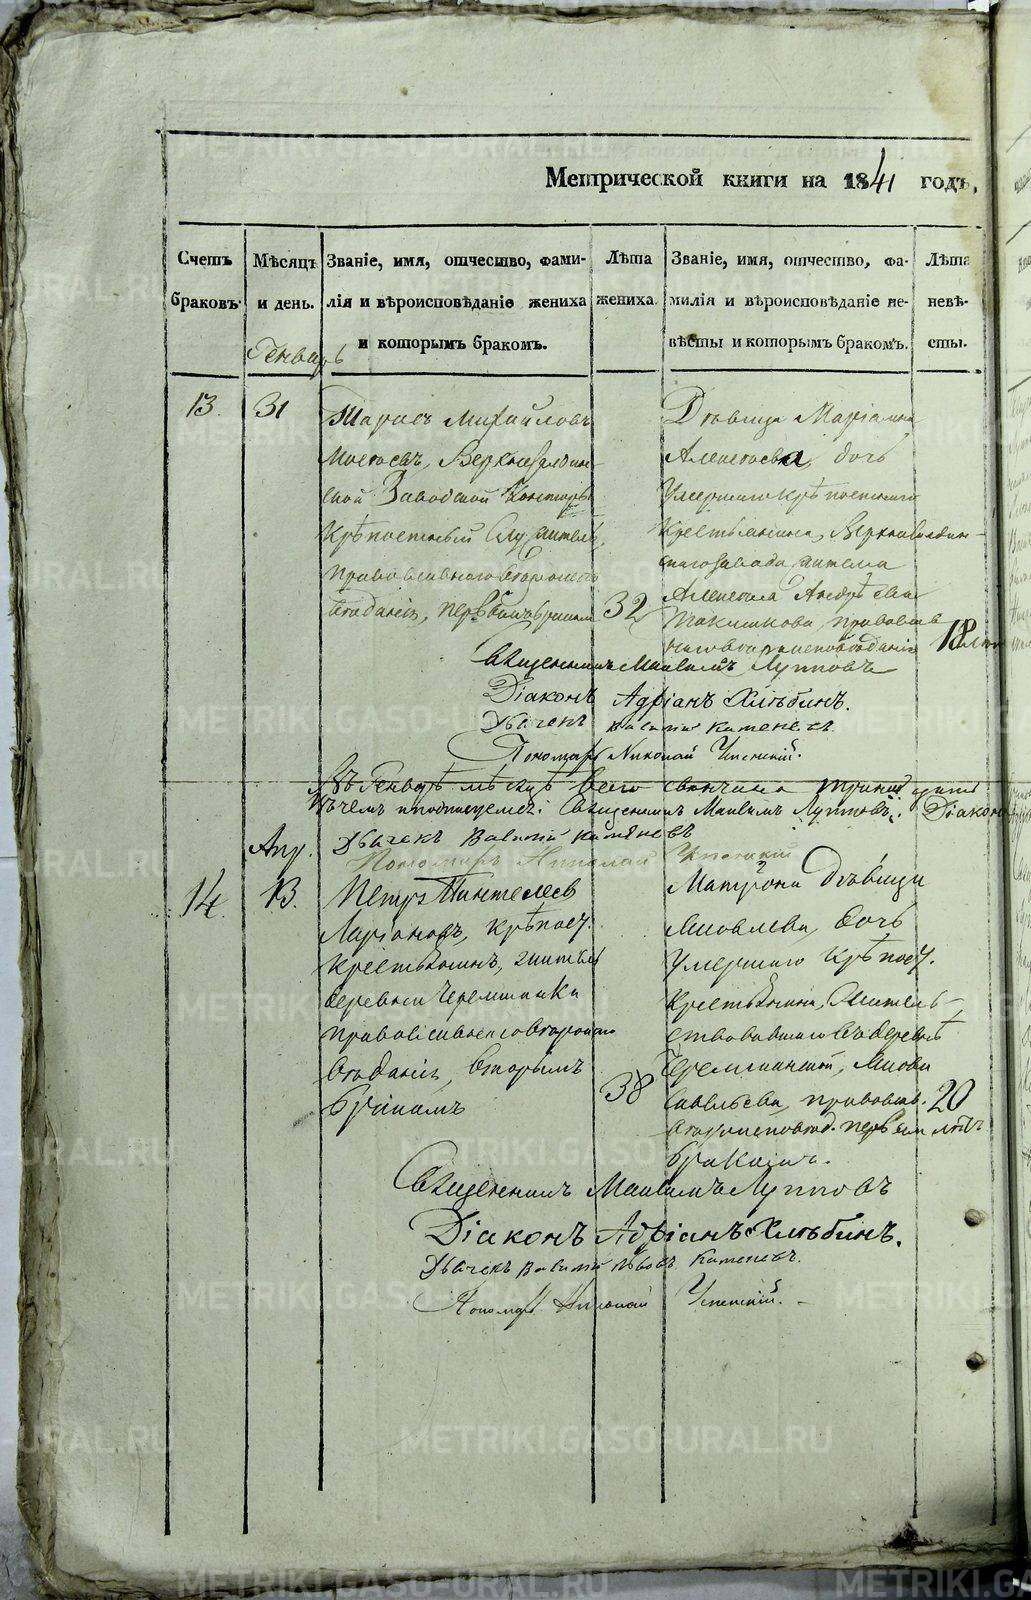 Метрической книги на 1841 годъ,
Счетъ браковъ.
Мѣсяцъ и день.
Званіе, имя, отчество, фами-
лія и вѣроисповѣданіе жениха
и которымъ бракомъ.
Лѣта жениха.
Званіе, имя, отчество, фа-
милія и вѣроисповѣданіе не-
вѣсты и которымъ бракомъ.
Лѣта невѣ-
сты.
Генварь
13.
31
Тарасъ Михайловъ
Верхнесалдин-
ской Заводской Конторы
Крѣпостный Служитель,
православнаго
первымъ бракомъ
32
Дѣвица
Алексѣева, дочь
Умершаго крѣпостнаго
Крестьянина, Верхнесалдин-
скаго завода жителя
Алексѣя Андрѣева
православ
18 лѣтъ
Священникъ Максимъ Лупповъ
Діаконъ Адріанъ Хлѣбинъ.
Дьячекъ Василій Каменевъ
Пономарь Николай Успенскій.
Въ Генварѣ мѣсяцѣ всего
въ чемъ и подписуемся: Священникъ Максимъ Лупповъ: Діаконъ
Дьячекъ Василій Каменевъ
Пономарь Николай Успенскій
Апр.
14.
13.
Петръ Пантелеев
Ларіоновъ, крѣпост.
Крестьянинъ, житель
деревни Черемшанки
православнаго
вторымъ
бракомъ
38
Матрона дѣвица
Яковлева, дочь
Умершаго крѣпост.
Крестьянина, Житель-
ствовавшаго въ деревнѣ
Черемшанской, Якова
Савельева, православ.
первымъ
бракомъ.
20
лѣтъ
Священникъ Максимъ Лупповъ
Діаконъ Адріанъ Хлѣбинъ.
Дьячекъ Василій Львовъ Каменевъ.
Пономарь Николай Успенскій.
METRIKI.GASO-URAL.RU